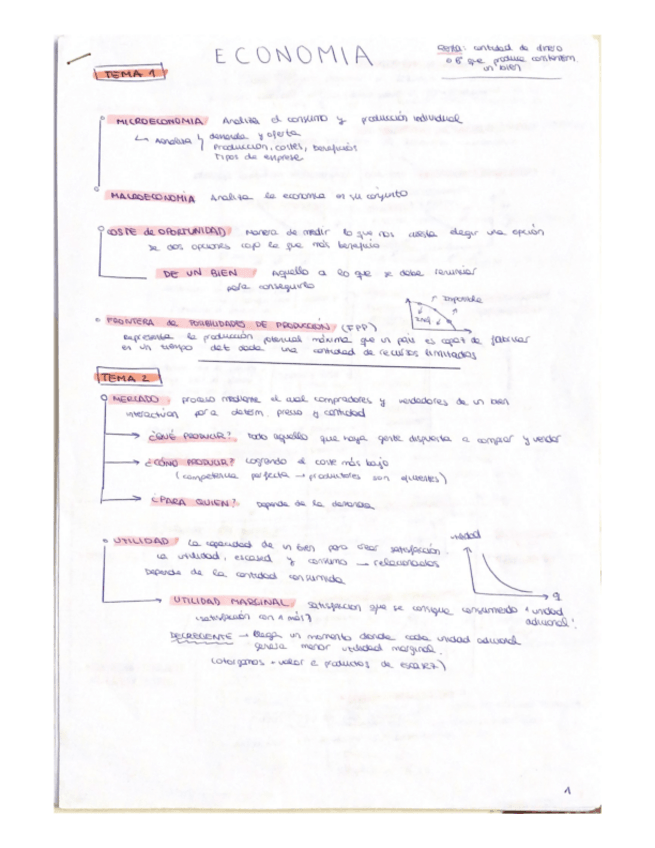 ECONOMIA
RENTA: cantidad de dinero
o B° que produce
un bien
TEMA 1
MICROECONOMIA Analiza el consumo y producción individual
Analiza demanda y oferta
Producción, costes, beneficios
Tipos de empresa
MACROECONOMIA Analiza la economia en su conjunto
COSTE de OPORTUNIDAD Manera de medir lo que nos cuesta elegir una opción
de dos opciones cojo la que más beneficio
DE UN BIEN Aquello a lo que se debe renunciar
para conseguirlo
FRONTERA de POSIBILIDADES DE PRODUCCIÓN (FPP)
imposible
inef
representa la producción potencial máxima que un pais es capaz de fabricar
en un tiempo det dada una cantidad de recursos limitados
TEMA 2
MERCADO: proceso mediante el cual compradores y vendedores de un bien
interactúan para determ. precio y cantidad
¿QUÉ PRODUCIR? todo aquello que haya gente dispuesta a comprar y vender
¿CÓMO PRODUCIR? Logrando el coste más bajo
(competencia perfecta → productores son eficientes)
¿PARA QUIEN? Depende de la demanda
UTILIDAD La capacidad de un bien para crear satisfacción.
La utilidad, escasez y consumo → relacionados
Depende de la cantidad consumida
utilidad
q
UTILIDAD MARGINAL satisfaccion que se consigue consumiendo 1 unidad
adicional.
¿satisfacción con 1 más?
DECRECIENTE → llega un momento donde cada unidad adicional
genera menor utilidad marginal.
(otorgamos + valor a productos de escasez)
1